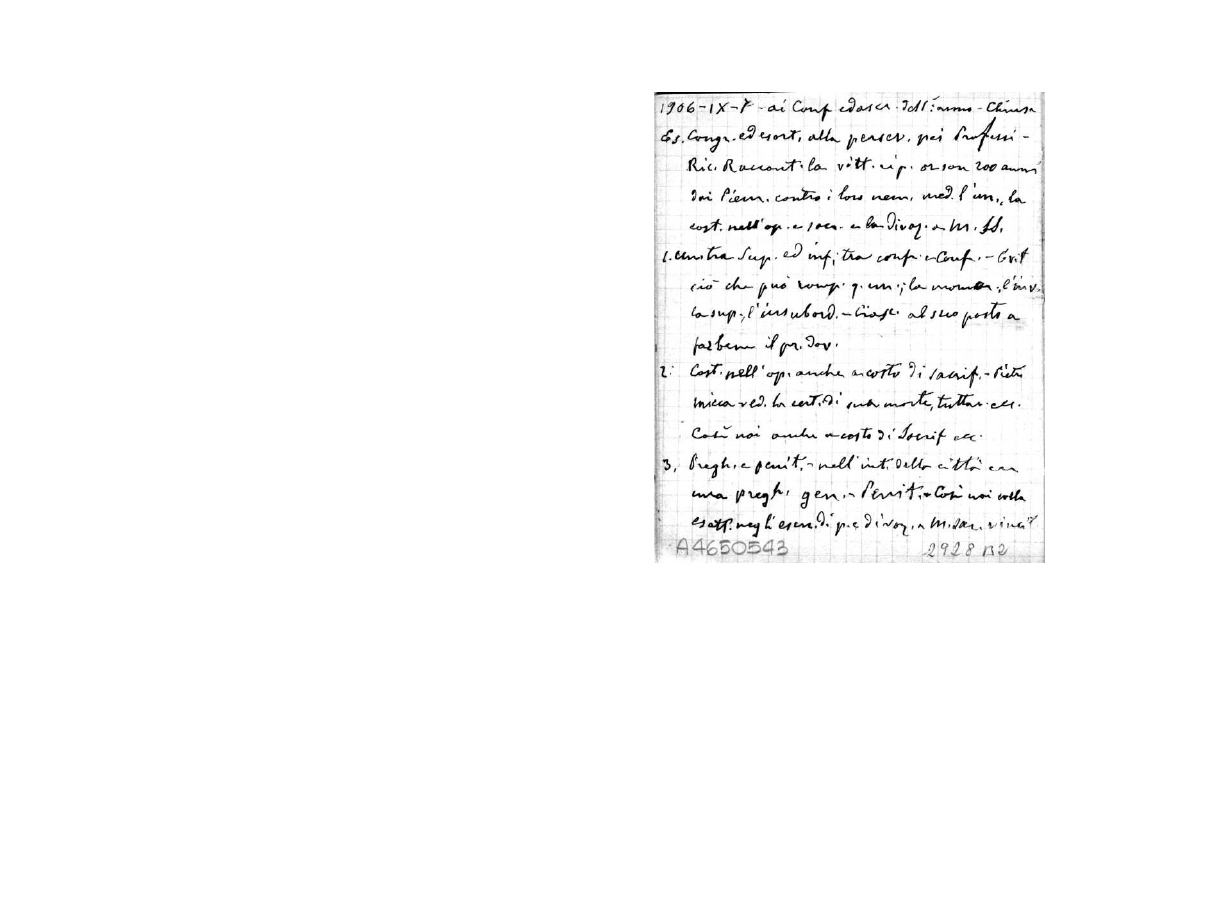 1906-IX-7 - ai Conf ed ascr. dell'anno - Chiusa
Es. Congr. ed esort. alla persev. pei Professi -
Ric. Raccont. la vitt. rip. or son 200 anni
dai Piem. contro i loro nem. med. l'un., la
cost. nell'op. e sacr. e la divoz. a M. SS.
1. un. tra Sup. ed inf., tra conf. e Conf. - Evit
ciò che può romp. q. un.; la mormor., l'inv.
la sup., l'insubord. - Ciasc. al suo posto a
far bene il pr. dov.
2. Cost. nell'op. anche a costo di sacrif. - Pietro
Micca ved. la cert. di sua morte, tuttav. ecc.
Così noi anche a costo di Sacrif ecc.
3. Pregh. e penit. - nell'int. della città era
una pregh. gen. - Penit. - Così noi colla
esatt. negli eserc. di p. e divoz. a M. sar. vincit
A4650543 2928 B2